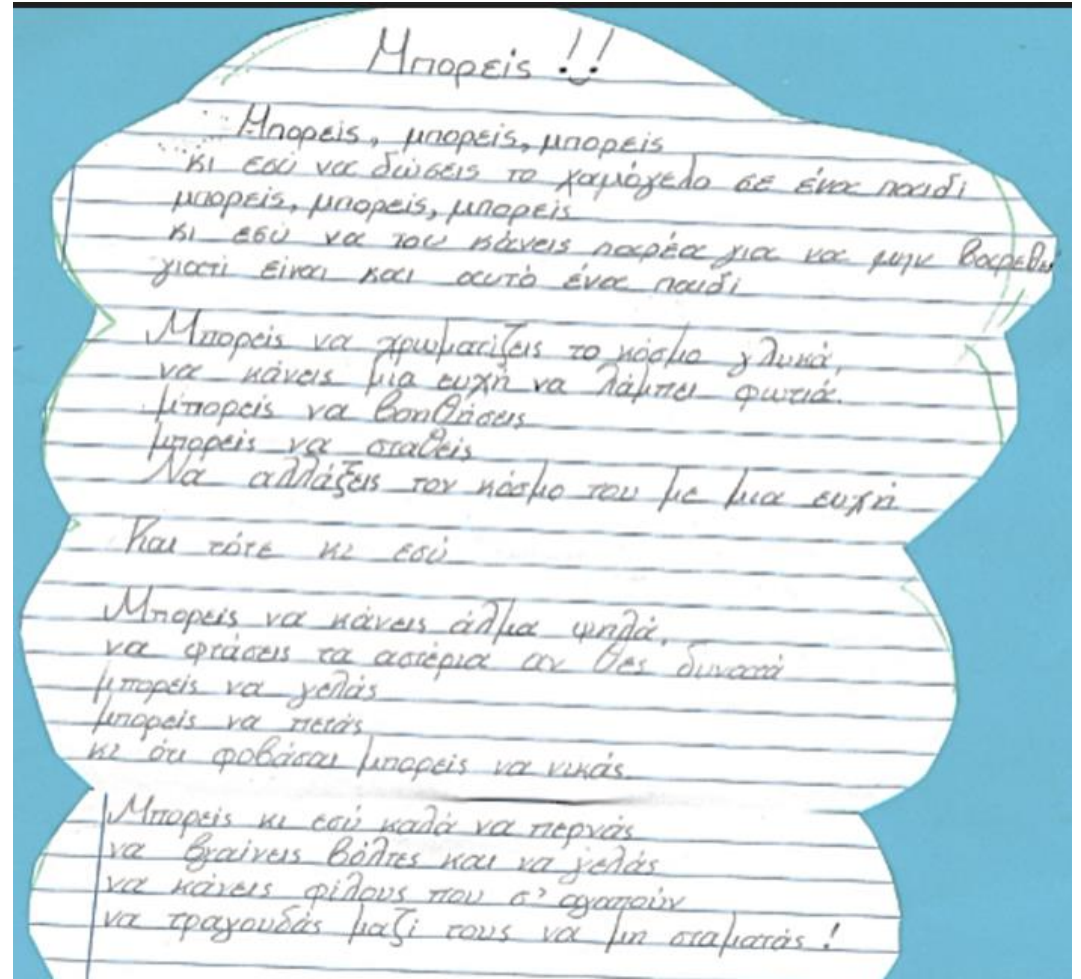 Μπορείς !!
Μπορείς, μπορείς, μπορείς
κι εσύ να δώσεις το χαμόγελο σε ένα παιδί
μπορείς, μπορείς, μπορείς
κι εσύ να του κάνεις παρέα για να μην βαρεθεί
γιατί είναι και αυτό ένα παιδί
Μπορείς να χρωματίζεις το κόσμο γλυκά,
να κάνεις μια ευχή να λάμπει φωτιά.
μπορείς να βοηθήσεις
μπορείς να σταθείς
Να αλλάξεις τον κόσμο του με μια ευχή
Και τότε κι εσύ
Μπορείς να κάνεις άλμα ψηλά,
να φτάσεις τα αστέρια αν θες δυνατά
μπορείς να γελάς
μπορείς να πετάς
κι ότι φοβάσαι μπορείς να νικάς
Μπορείς κι εσύ καλά να περνάς
να βγαίνεις βόλτες και να γελάς
να κάνεις φίλους που σ' αγαπούν
να τραγουδάς μαζί τους να μη σταματάς !